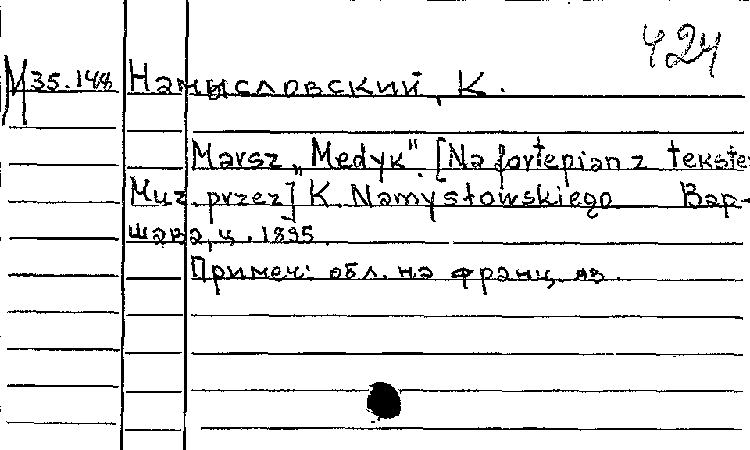 424
М 35.148 Намысловский, К.
Marsz „Medyk". [Na fortepian z tekste
Muz. przez] K. Namysłowskiego Вар-
шава, ц. 1895.
Примеч: обл. на франц. яз.